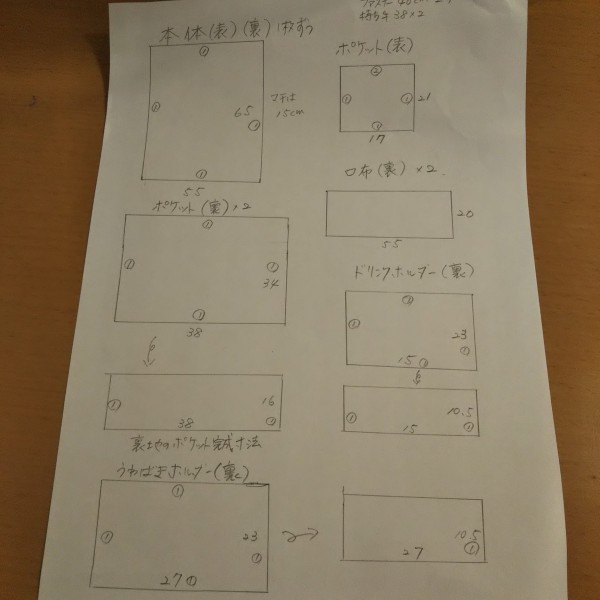 持ち手 38×2
本体(表)(裏)1枚ずつ
①
①
65
①
①
55
マチは
15cm
ポケット(表)
②
①
①
21
①
17
口布(裏)×2
20
55
ポケット(裏)×2
①
①
①
34
①
38
16
①
38
①
裏地のポケット完成寸法
ドリンクホルダー(裏)
①
①
23
①
15
①
10.5
①
15
①
うわばきホルダー(裏)
①
①
23
①
27
①
10.5
27
①